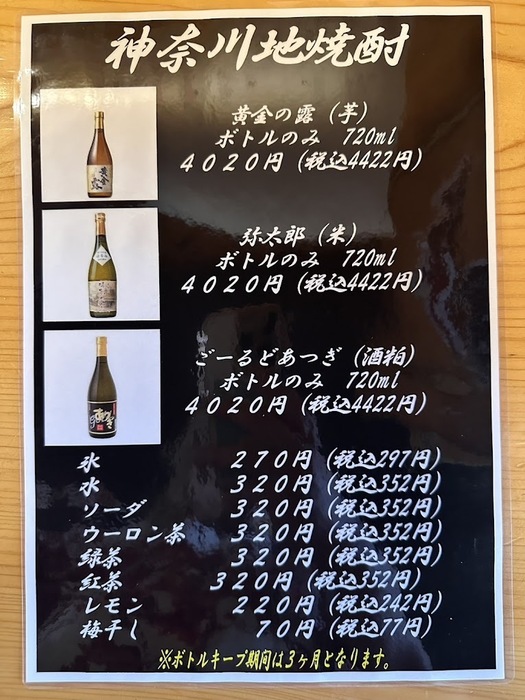 神奈川地焼酎
黄金の露（芋）
ボトルのみ 720ml
4020円（税込4422円）
弥太郎（米）
ボトルのみ 720ml
4020円（税込4422円）
ごーるどあつぎ（酒粕）
ボトルのみ 720ml
4020円（税込4422円）
氷 270円（税込297円）
水 320円（税込352円）
ソーダ 320円（税込352円）
ウーロン茶 320円（税込352円）
緑茶 320円（税込352円）
紅茶 320円（税込352円）
レモン 220円（税込242円）
梅干し 70円（税込77円）
※ボトルキープ期間は3ヶ月となります。